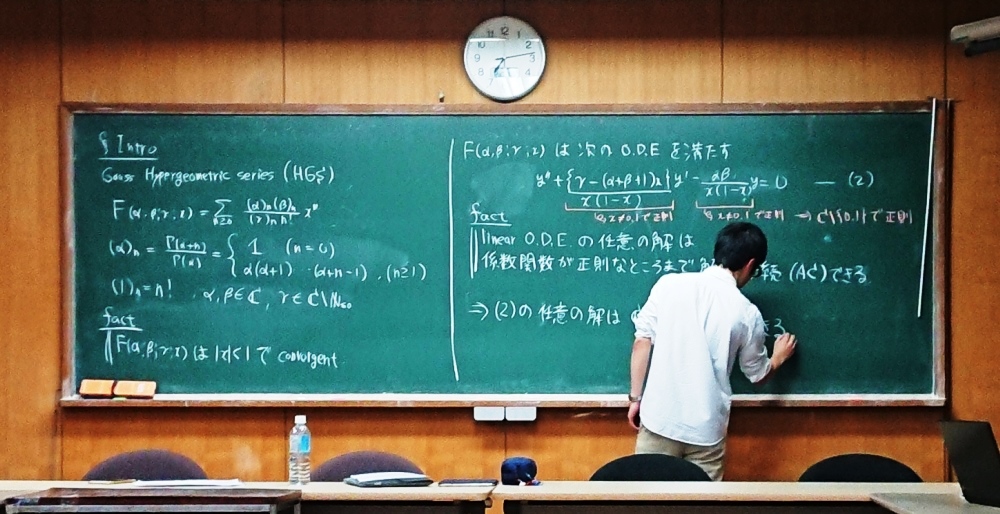 § Intro
Gauss Hypergeometric series (HGS)
F(α,β;γ;x) = Σ_{n≥0} (α)_n(β)_n / (γ)_n n! x^n
(α)_n = Γ(α+n) / Γ(α) = { 1 (n=0)
α(α+1)⋯(α+n-1) . (n≥1)
(1)_n = n! α,β∈ℂ, γ∈ℂ\
fact
F(α,β;γ;x) は |x|<1 で convergent
F(α,β;γ;x) は 次の O.D.E を満たす
y'' + {γ-(α+β+1)x} / x(1-x) y' - αβ / x(1-x) y = 0 — (2)
x≠0,1で正則 x≠0,1で正則 ⇒ ℂ\{0,1}で正則
fact
linear O.D.E. の任意の解は
係数関数が正則なところまで 続 (AC) できる
⇒ (2)の任意の解は きる
12
1
2
3
4
8
9
10
11